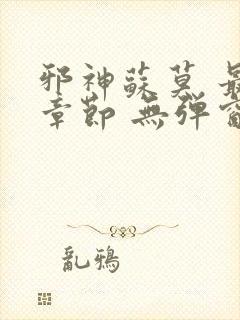 邪神蘇莫 最
章節 無彈窗
亂鴉